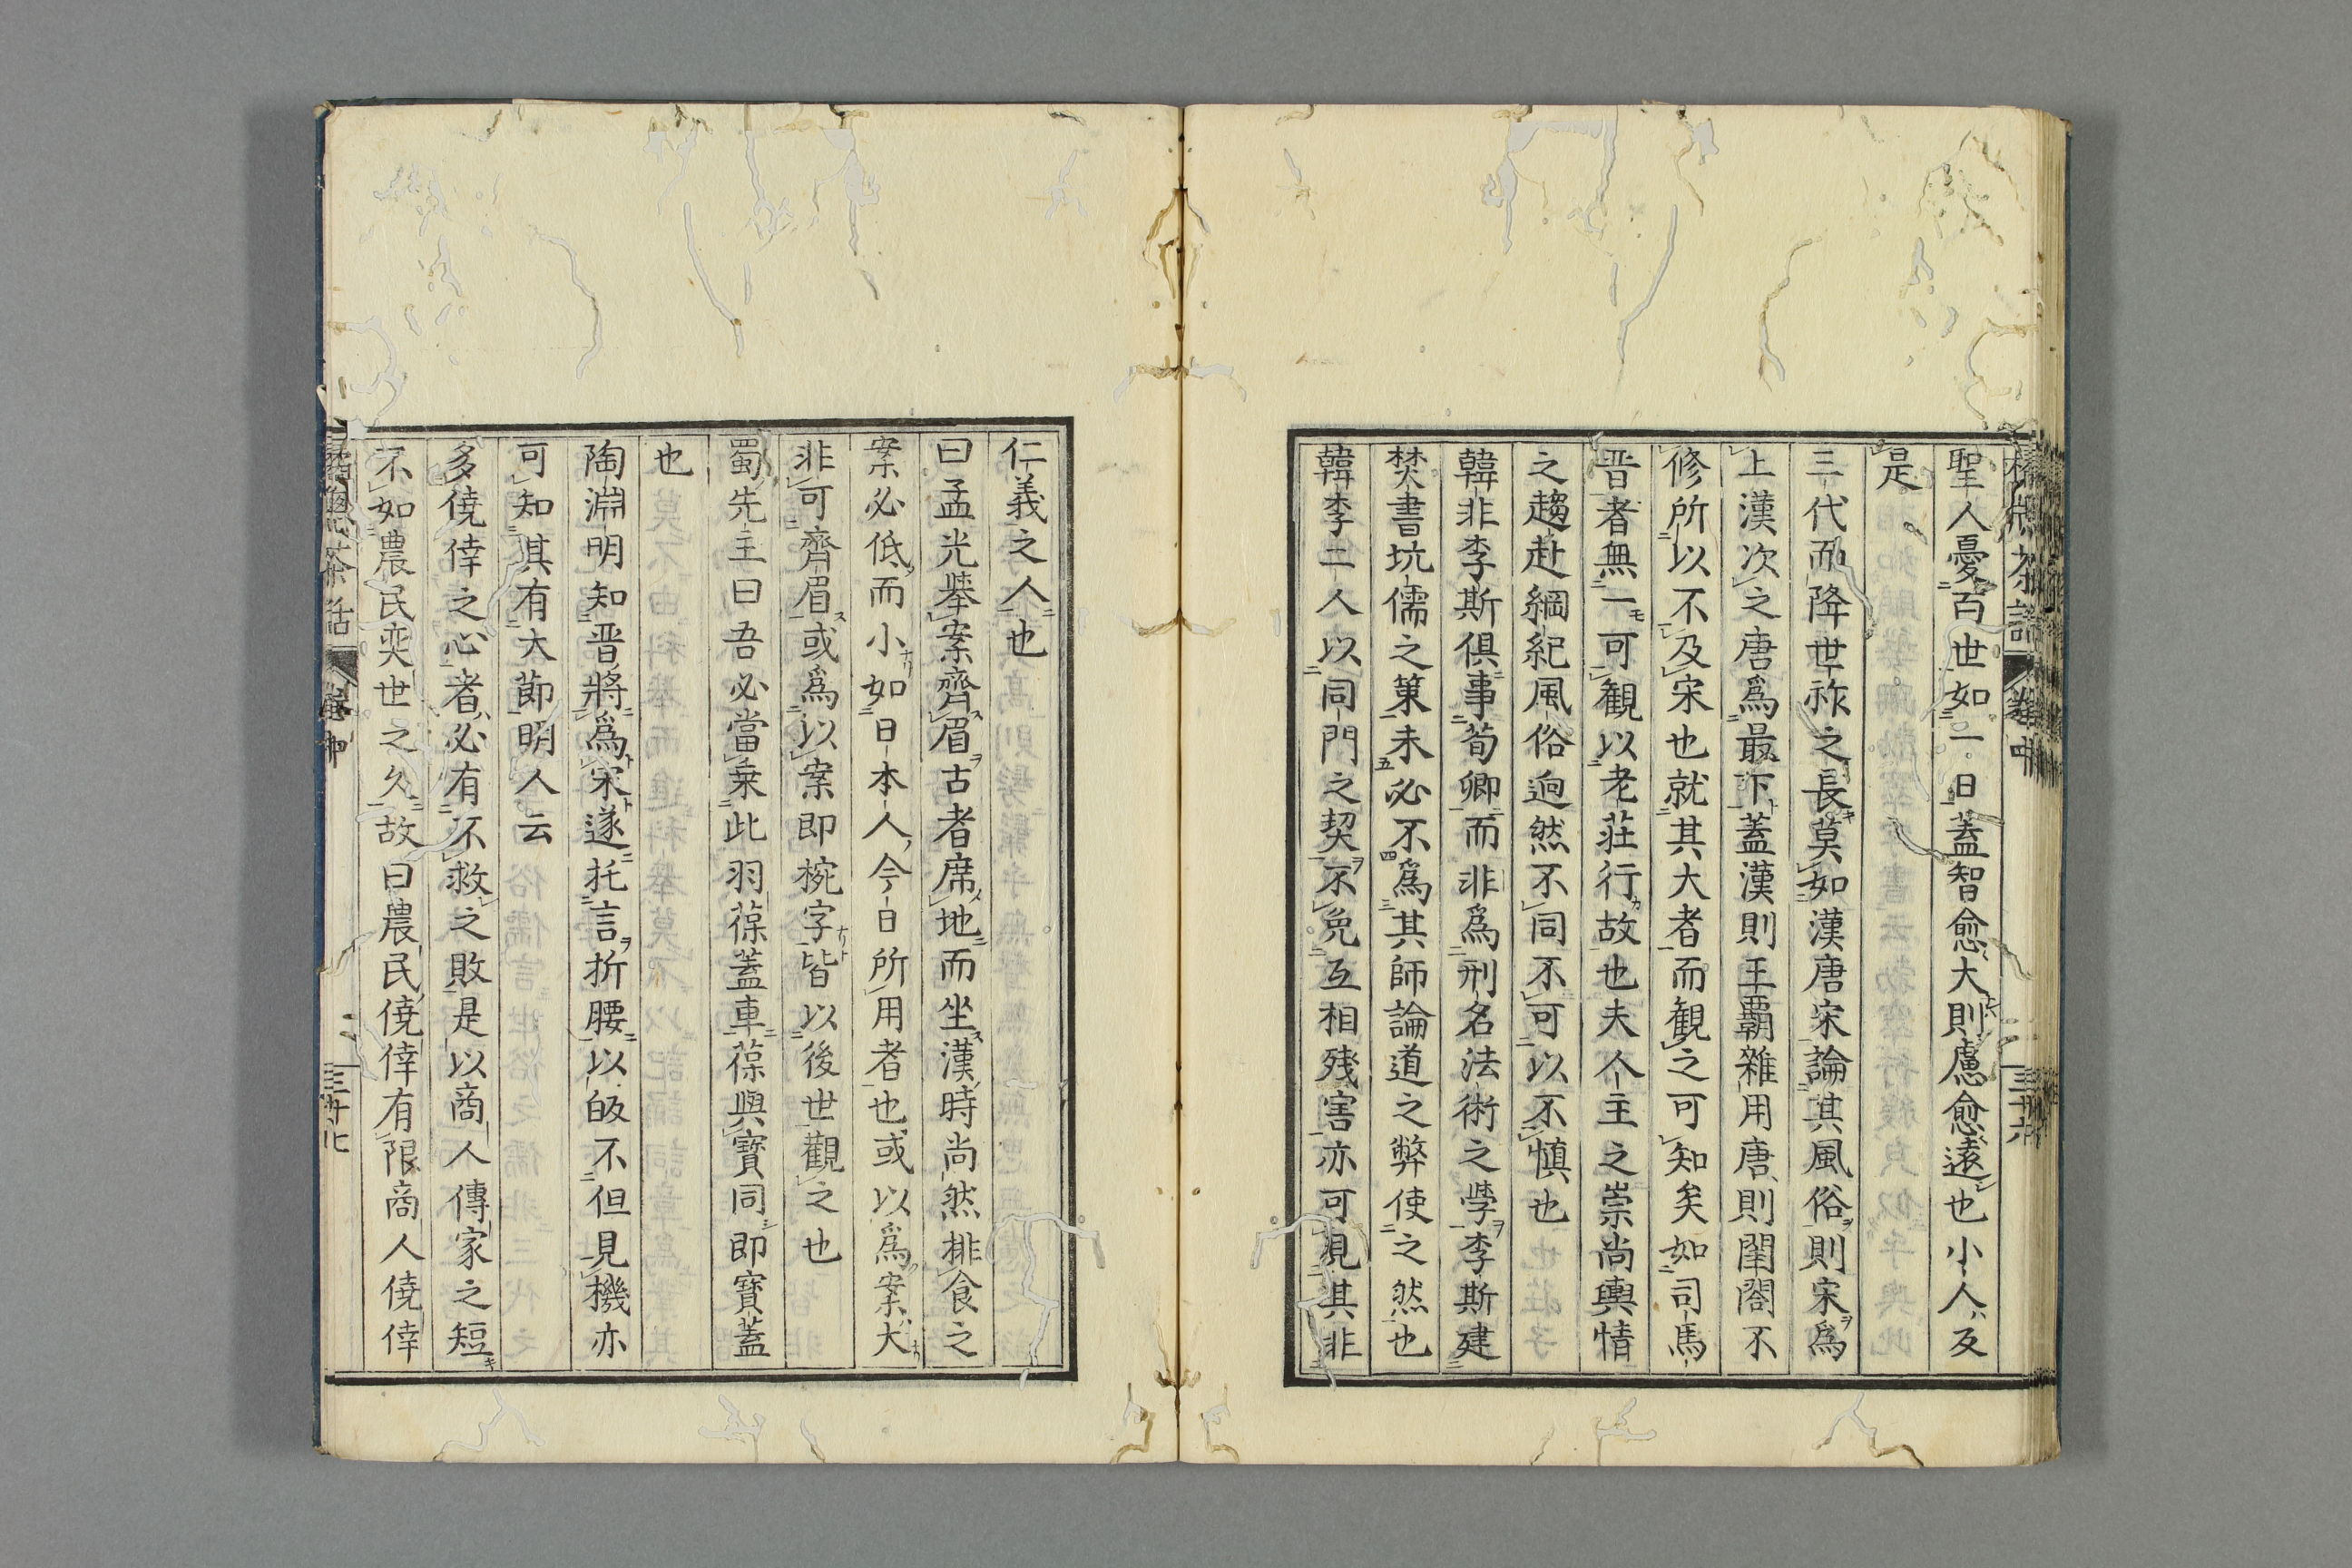 聖人憂百世如一日蓋智愈大則慮愈遠也小人反
是
三代而降世祚之長莫如漢唐宋論其風俗則宋爲
上漢次之唐爲最下蓋漢則王覇雜用唐則閨閤不
修所以不及宋也就其大者而観之可知矣如司馬
晋者無一可観以老荘行故也夫人主之崇尚輿情
之趨赴綱紀風俗逈然不同不可以不慎也
韓非李斯倶事荀卿而非爲刑名法術之學李斯建
焚書坑儒之策未必不爲其師論道之弊使之然也
韓李二人以同門之契不免互相残害亦可見其非
仁義之人也
曰孟光擧案齊眉古者席地而坐漢時尚然排食之
案必低而小如日本人今日所用者也或以爲案大
非可齊眉或爲以案即椀字皆以後世觀之也
蜀先主曰吾必當乗此羽葆蓋車葆與寳同即寳蓋
也
陶淵明知晋將爲宋遂托言折腰以皈不但見機亦
可知其有大節明人云
多僥倖之心者必有不救之敗是以商人傳家之短
不如農民奕世之久故曰農民僥倖有限商人僥倖
茶話 卷中 三十七